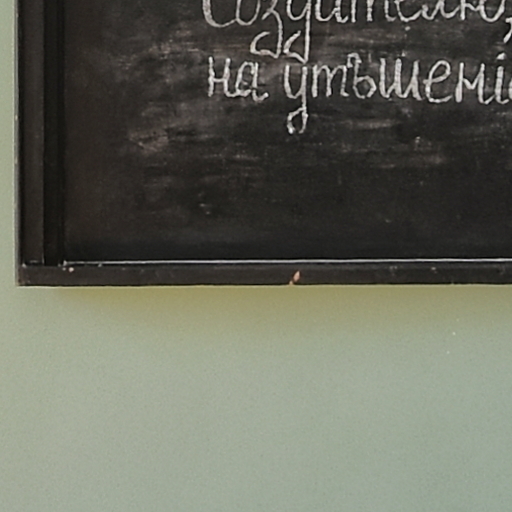 Создателю,
на утѣшені